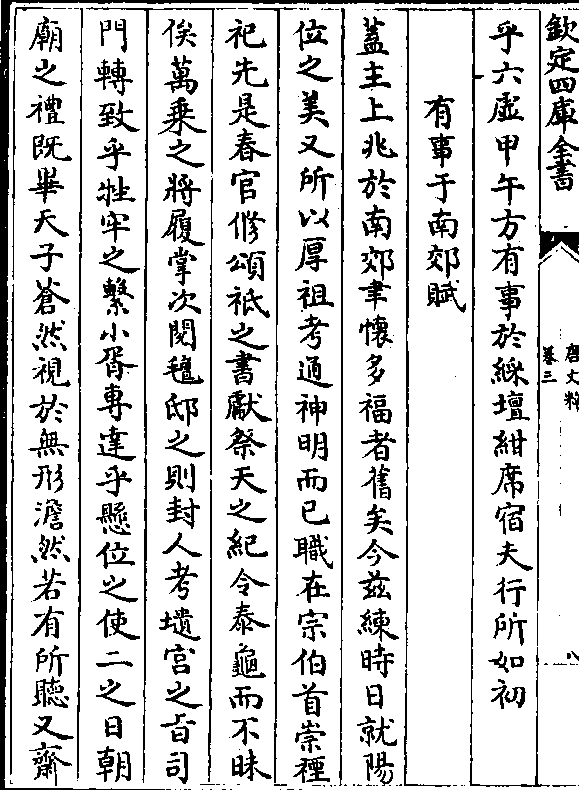 欽定四庫全書
唐文粹
卷三
八
乎六虛甲午方有事於綵壇紺席宿夫行所如初
有事于南郊賦
蓋主上兆於南郊聿懷多福者舊矣今兹練時日就陽
位之美又所以厚祖考通神明而已職在宗伯首崇禋
祀先是春官修頌祇之書獻祭天之紀令泰龜而不昧
俟萬乗之將履掌次閱氊邸之則封人考壝宫之旨司
門轉致乎牲牢之繫小胥專達乎懸位之使二之日朝
廟之禮既畢天子蒼然視於無形澹然若有所聽又齋